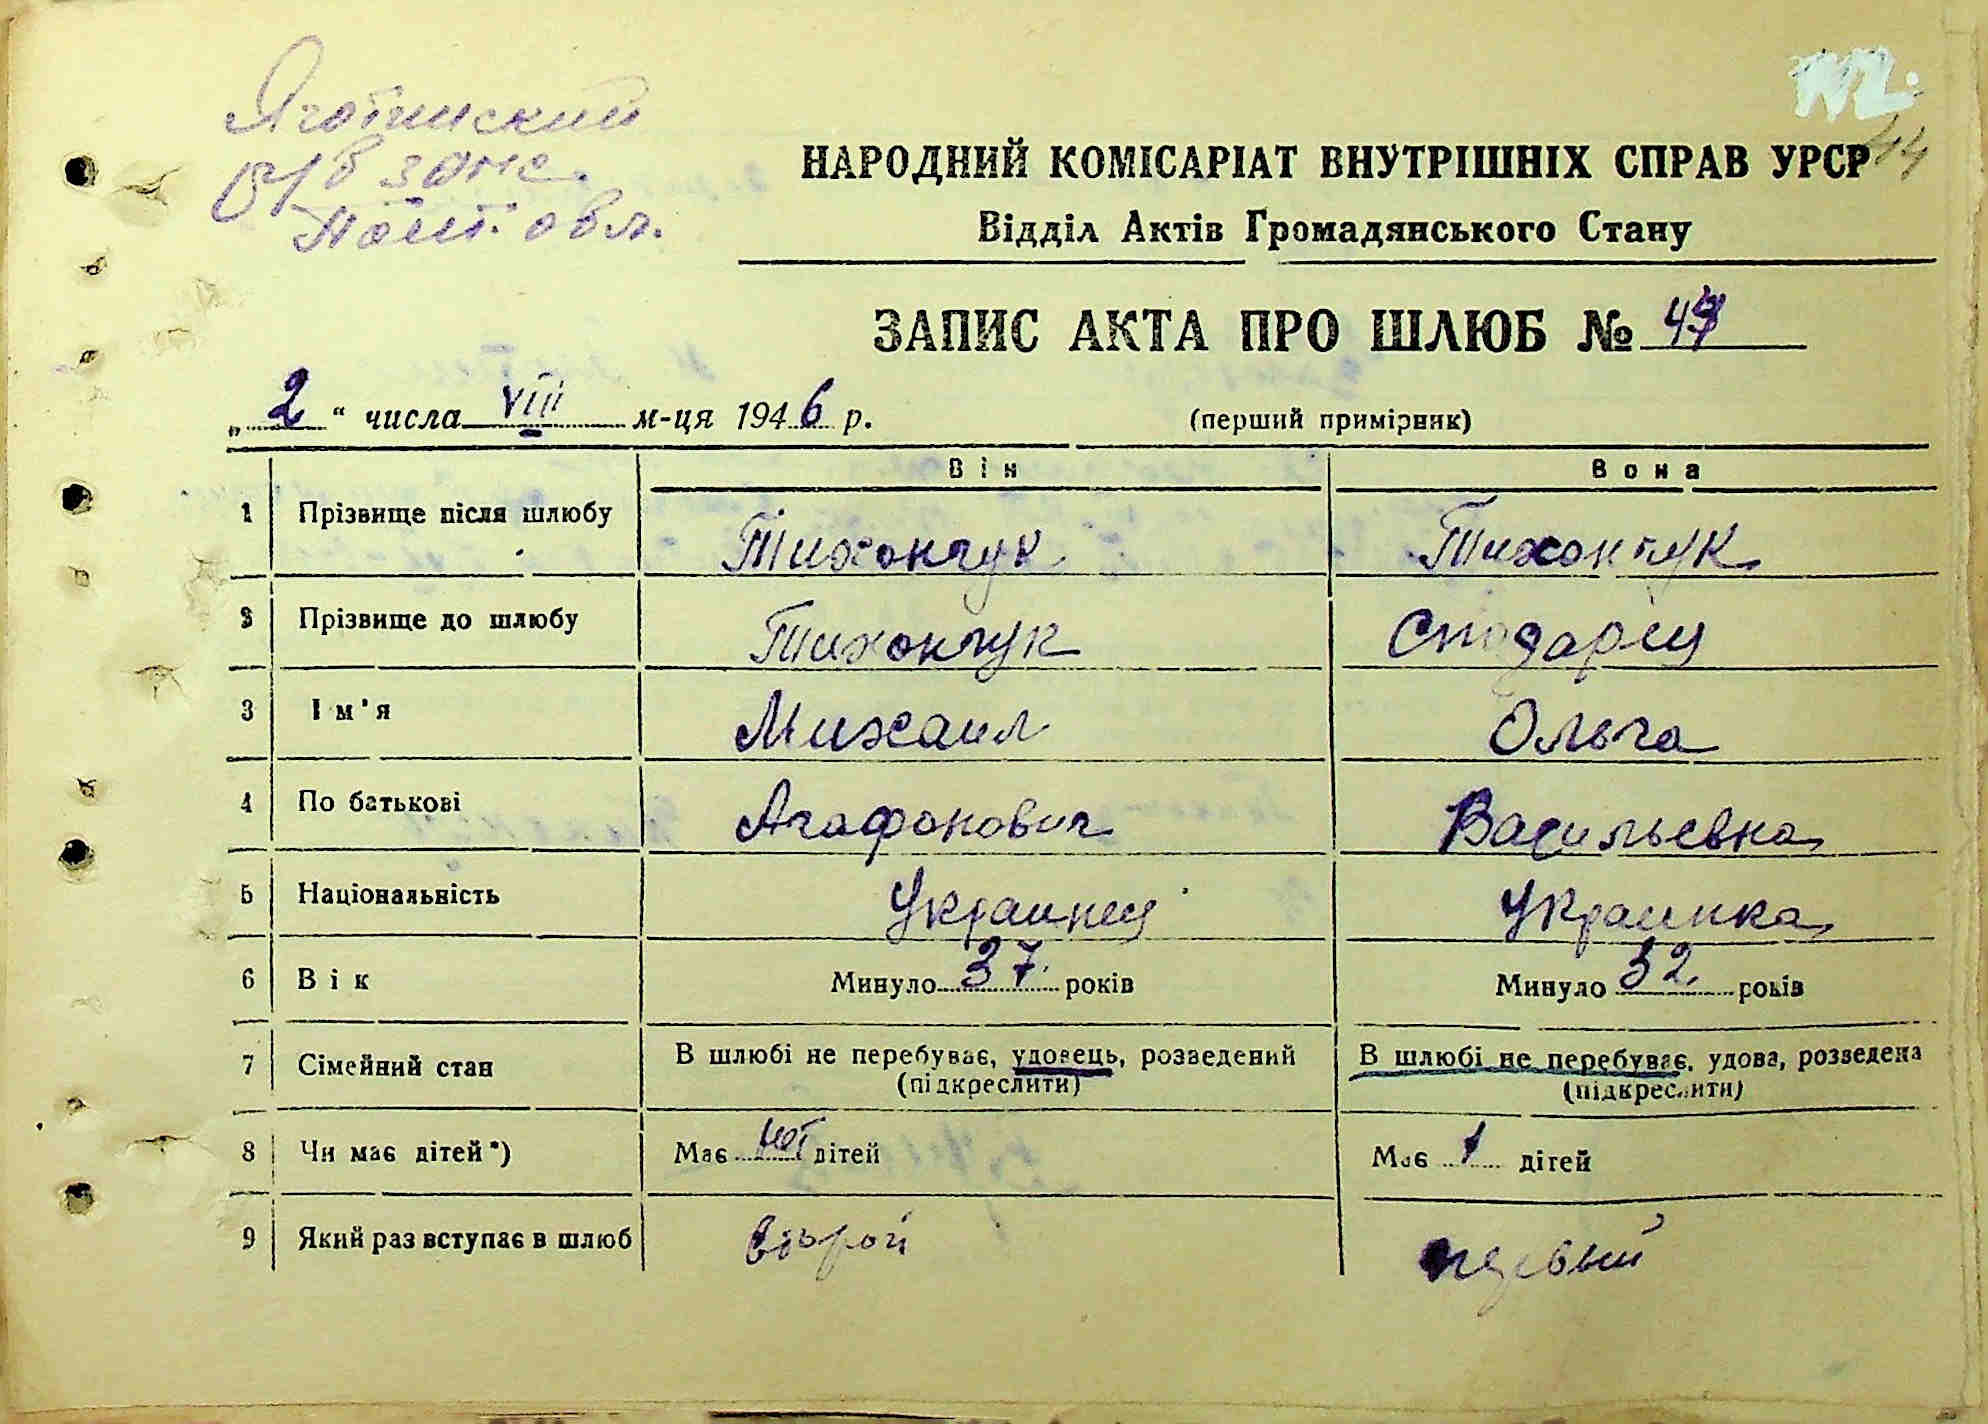 Яготинский
р/б загс.
Полт. обл.
44
НАРОДНИЙ КОМІСАРІАТ ВНУТРІШНІХ СПРАВ УРСР
Відділ Актів Громадянського Стану
ЗАПИС АКТА ПРО ШЛЮБ №
„ 2 “ числа VIII м-ця 1946 р.
(перший примірник)
Він Вона
1 Прізвище після шлюбу Тихончук Тихончук
2 Прізвище до шлюбу Тихончук Сподарец
3 Ім'я Михаил Ольга
4 По батькові Агафонович Васильевна
5 Національність Украинец Украинка
6 Вік Минуло 37 років Минуло 32 років
7 Сімейний стан В шлюбі не перебуває, удовець, розведений В шлюбі не перебуває, удова, розведена
(підкреслити) (підкреслити)
8 Чи має дітей*) Має нет дітей Має 1 дітей
9 Який раз вступає в шлюб второй первый